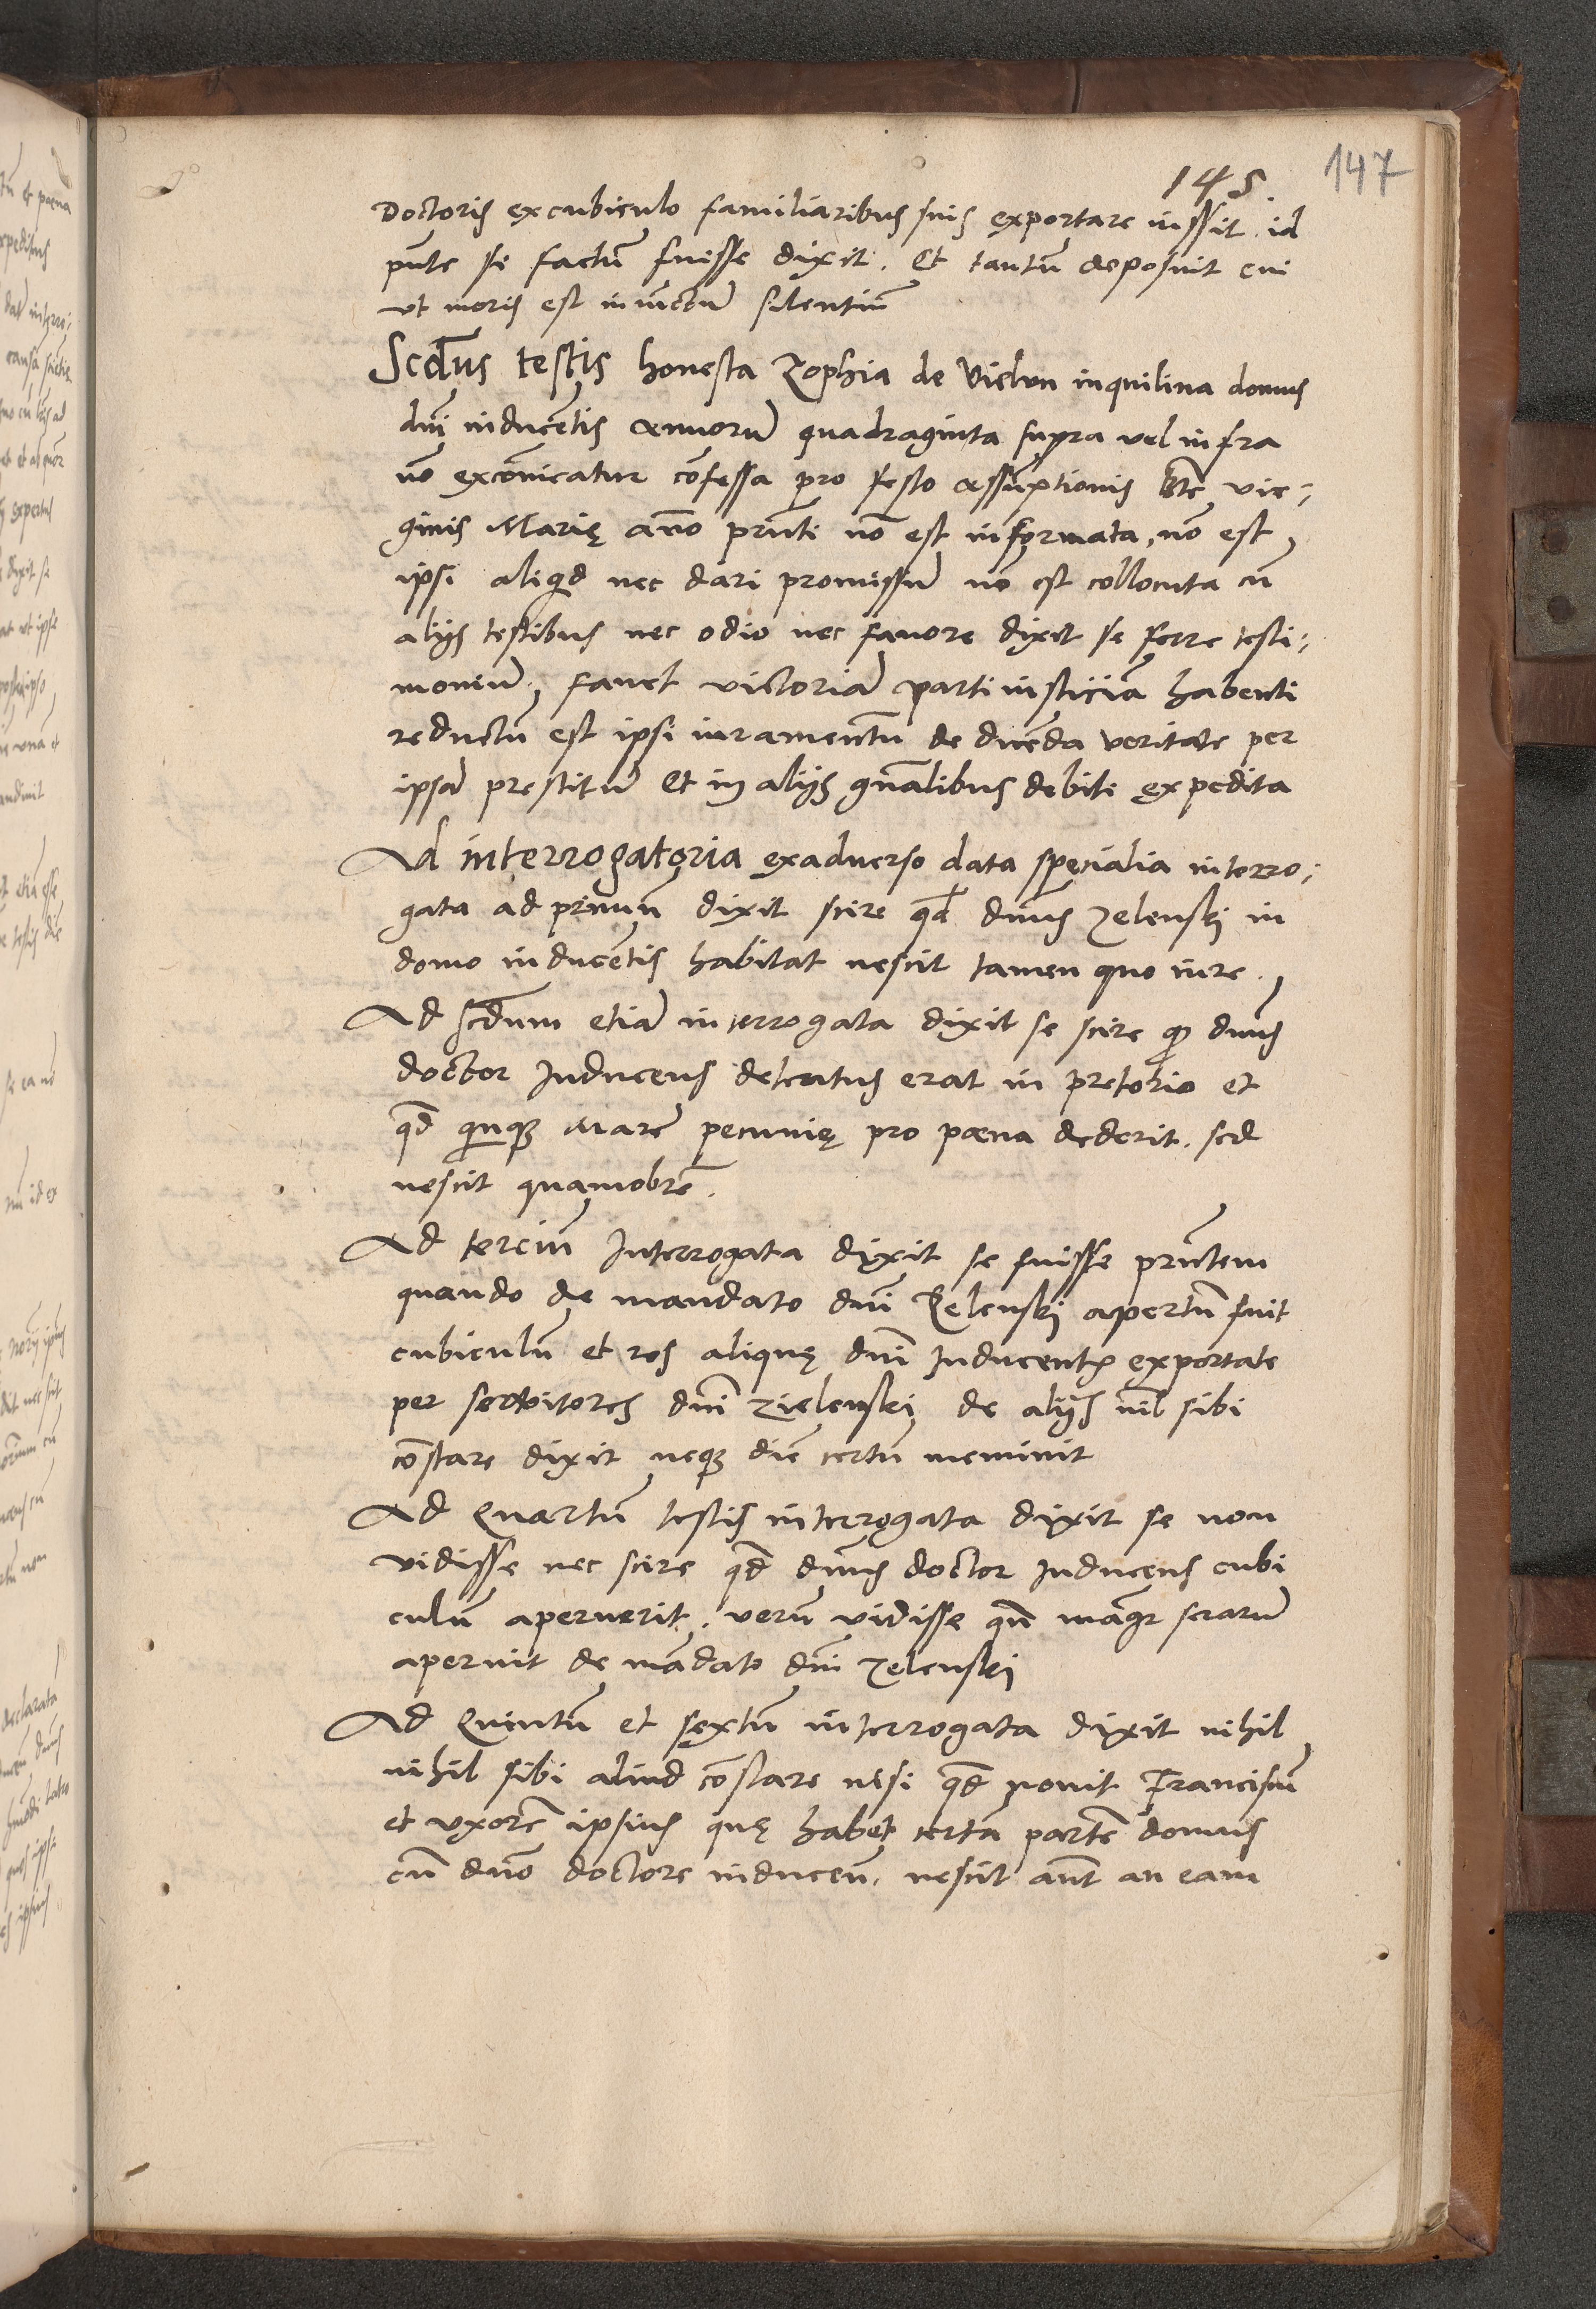 145.
147
Doctoris ex cubiculo familiaribus suis exportare iussit. id
pñte se factũ fuisse dixit. Et tantũ deposuit cui
vt moris est iniunctũ silentiũ
Scdus testis honesta Zophia de Vielun inquilina domus
dñi inducẽtis annorũ quadraginta supra vel infra
nõ excõmicatur cõfessa pro festo assũptionis Btẽ vir-
ginis Marię anno prñti nõ est informata, nõ est
ipsi aliqd nec dari promissũ nõ est collocuta cũ
aliis testibus nec odio nec fauore dixit se ferre testi-
moniũ, fauet victoriã parti iusticiã habenti
reductũ est ipsi iuramentũ de dicẽda veritate per
ipsã prestitũ Et in aliis gñalibus debite expedita
Ad interrogatoria exaduerso data specialia interro-
gata ad primũ dixit scire qd dñus Zelenski in
domo inducẽtis habitat nescit tamen quo iure.
Ad scdum etiã interrogata dixit se scire qp dñus
doctor Inducens detentus erat in pretorio et
qd quinqz Marc pecunię pro pœna dederit. sed
nescit quamobrẽ.
Ad terciũ Interrogata dixit se fuisse prñtem
quando de mandato dñi Zelenski apertũ fuit
cubiculũ et res aliquę dñi Inducentis exportate
per seruitores dñi Zielenski de aliis nil sibi
cõstare dixit neqz diẽ certũ meminit
Ad Quartũ testis interrogata dixit se non
vidisse nec scire qd dñus doctor Inducens cubi
culũ aperuerit. verũ vidisse qñ mãgr serarũ
aperuit de mãdato dñi Zelenski
Ad Quintũ et sextũ interrogata dixit nihil
nihil sibi aliud cõstare nisi qd nouit Franciscũ
et vxorẽ ipsius quę habet certã partẽ domus
cũ dño doctore inducen. nescit aũt an eam